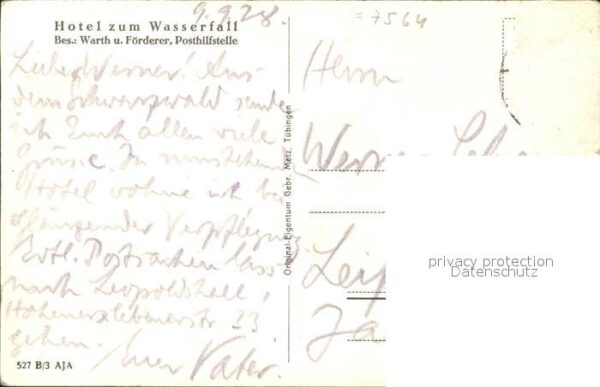 9.9.28.
= 7564
Hotel zum Wasserfall
Bes.: Warth u. Förderer, Posthilfstelle
Lieber Werner! Aus
dem Schwarzwald sende
ich Euch allen viele
Grüsse. In umstehendem
Hotel wohne ich bei
glänzender Verpflegung.
Evtl. Postsachen lass
nach Leopoldshall,
Hohenerxlebenerstr. 23
gehen. Euer Vater.
527 B/3 AJA
Original-Eigentum Gebr. Metz, Tübingen
Herrn
Werner
Leip
privacy protection
Datenschutz